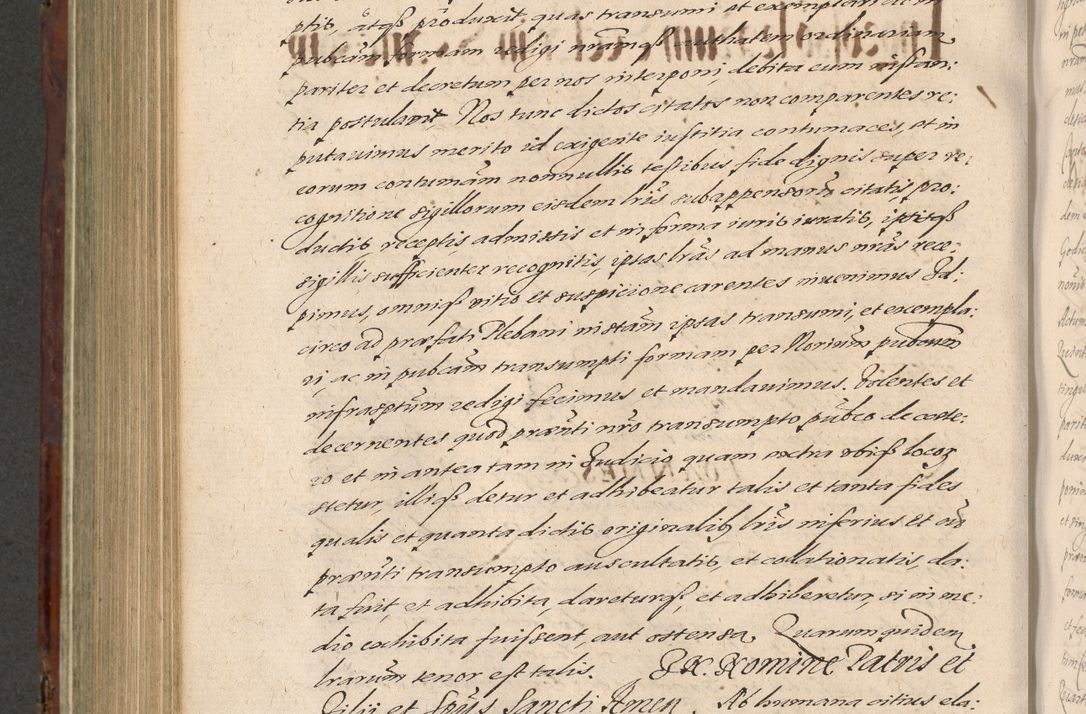 ptis, atqß produxit quas transumi et exemplari ac in
pubcam formam redigi nramqß authatem ordinariam
pariter et decretum per nos interponi debita cum instan:
tia postulavit, Nos tunc dictos citatos non comparentes re:
putavimus merito id exigente iustitia contumaces, et in
eorum contumam nonnullis testibus fide dignis super re:
cognitione sigillorum eisdem lris subappensorum citatis, pro:
ductis receptis, admissis et in forma iuris iuratis, ipsisqß
sigillis sufficienter recognitis, ipsas lras ad manus nras rece:
pimus, omniqß vitio et suspicione carentes invenimus Id:
circo ad præfati Plebani instam ipsas transumi, et exempla:
ri ac in pubcam transumpti formam per Norium pubcum
infrasptum redigi fecimus et mandavimus. Volentes et
decernentes quod prænti nro transumpto pubco de cæte:
ro et in antea tam in Judicio quam extra ubiqß locor
stetur, illiqß detur et adhibeatur talis et tanta fides
qualis et quanta dictis originalib lris inferius et
prænti transumpto auscultatis, et colationatis, da:
ta fuit, et adhibita, dareturqß, et adhiberetur, si in me:
dio exhibita fuissent, aut ostensa, Quarum quidem
lrarum tenor est talis. In Nomine Patris et
Filii et Spus Sancti Amen. Ab humana citius ela: